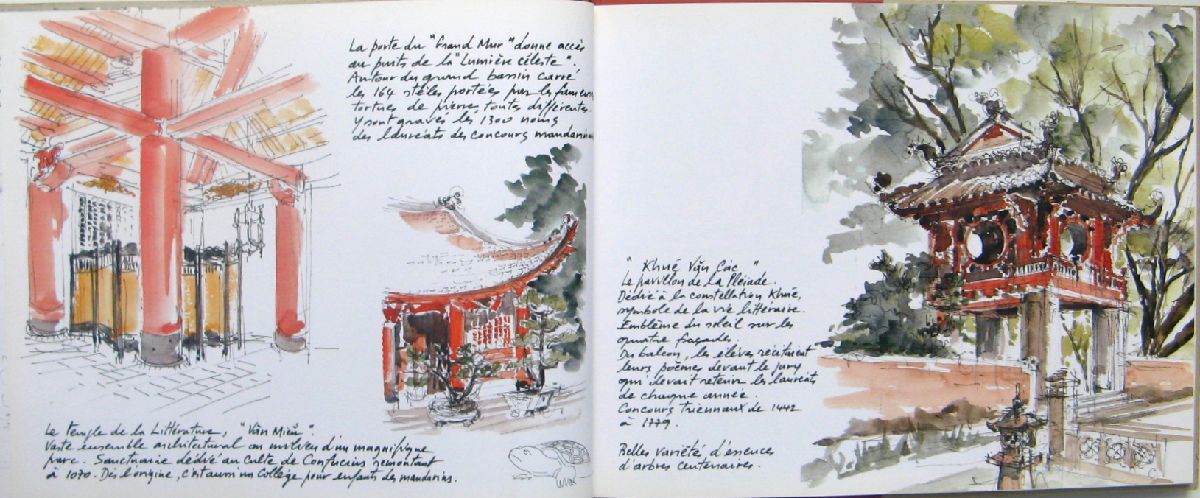 La porte du "Grand Mur" donne accès
au puits de la "Lumière céleste".
Autour du grand bassin carré
les 164 stèles portées par les fameuses
tortues de pierres toutes différentes.
Y sont gravés les 1300 noms
des lauréats des concours mandarins
Le temple de la Littérature, "Văn Miếu".
Vaste ensemble architectural au milieu d'un magnifique
parc. Sanctuaire dédié au culte de Confucius remontant
à 1070. Dès l'origine, c'est aussi un Collège pour enfants des mandarins.
"Khuê Văn Các"
Le pavillon de la Pléiade.
Dédié à la constellation Khuê,
symbole de la vie littéraire.
Emblème du soleil sur les
quatre façades.
Du balcon, les élèves récitaient
leurs poèmes devant le jury
qui devait retenir les lauréats
de chaque année.
Concours triennaux de 1442
à 1779.
Belles variété d'essences
d'arbres centenaires.